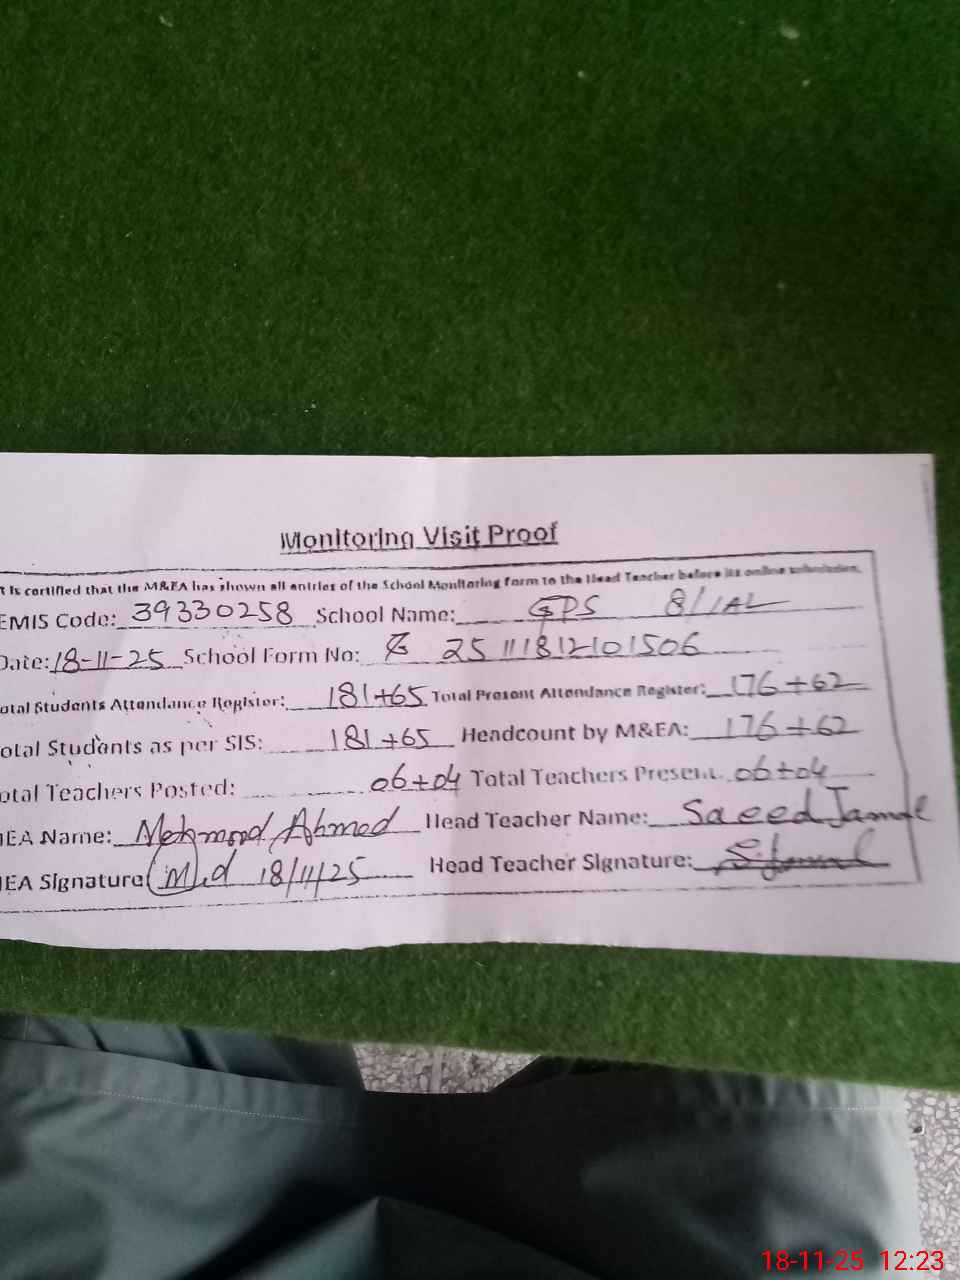 Monitoring Visit Proof
t is certified that the M&EA has shown all entries of the School Monitoring form to the Head Teacher before its online submission.
EMIS Code: 39330258 School Name: GPS 8/1AL
Date: 18-11-25 School Form No: 25111812101506
otal Students Attendance Register: 181+65 Total Present Attendance Register: 176+62
otal Students as per SIS: 181+65 Headcount by M&EA: 176+62
otal Teachers Posted: 06+04 Total Teachers Present: 06+04
IEA Name: Mehmood Ahmed Head Teacher Name: Saeed Jamal
IEA Signature 18/11/25 Head Teacher Signature:
18-11-25 12:23